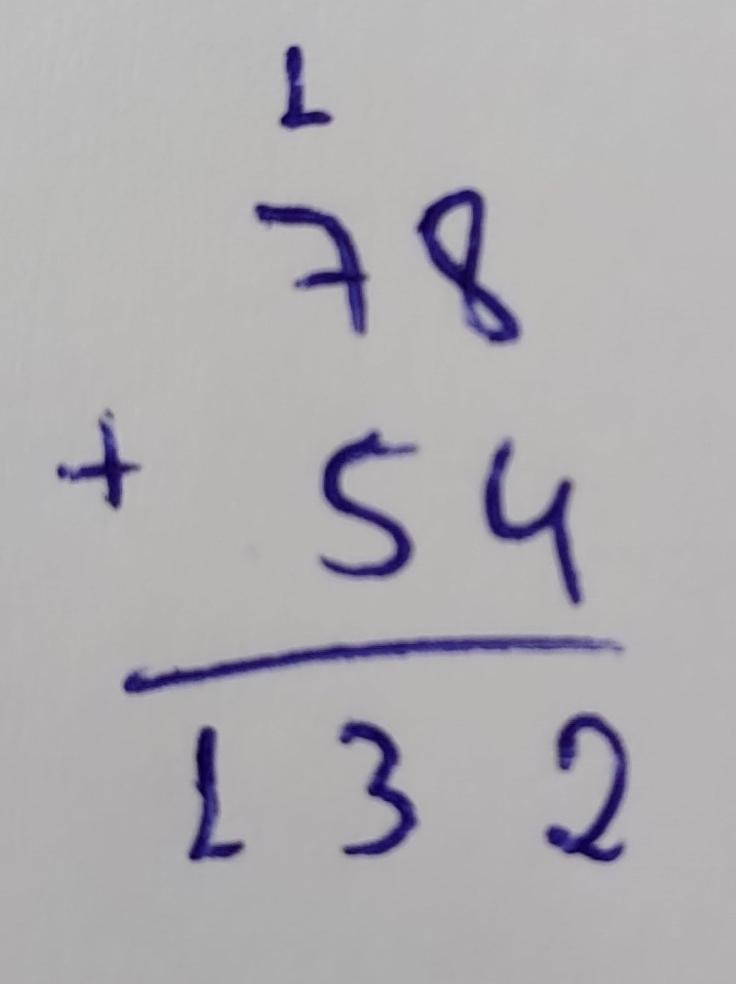 1
78
+ 54
132